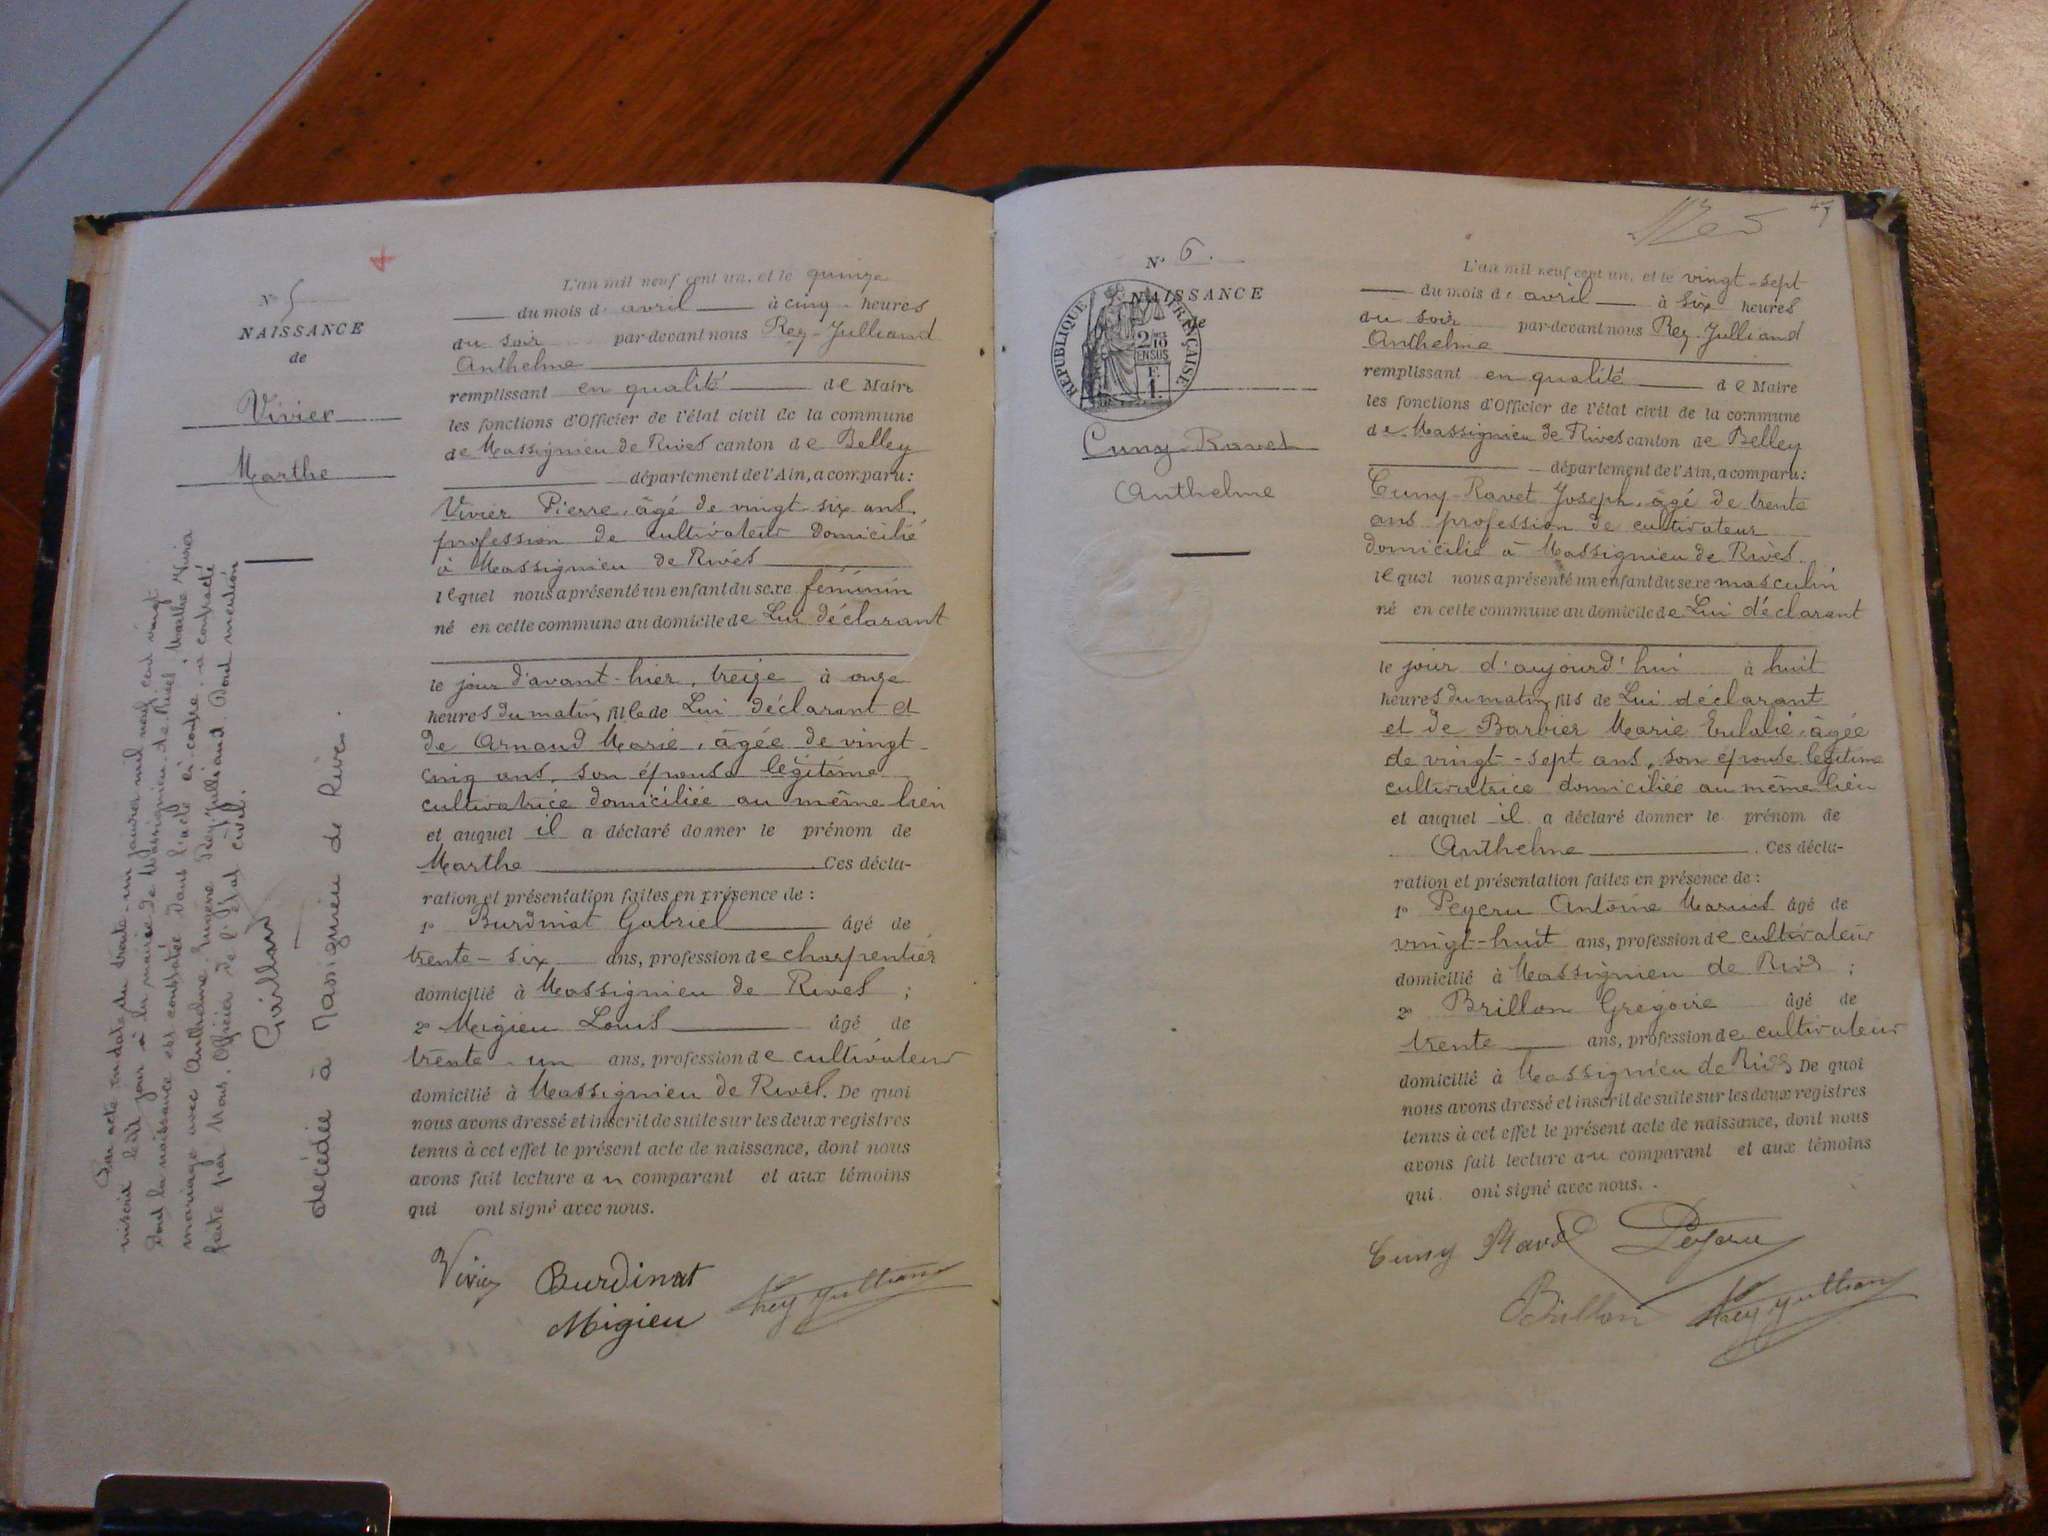 N° 5
NAISSANCE
de
Vivier
Marthe
Par acte en date du trente-un janvier mil neuf cent vingt
inscrit le dit jour à la mairie de Massignieu-de-Rives, Marthe Vivier
dont la naissance est constatée dans l'acte ci-contre, a contracté
mariage avec Anthelme Eugène Rey-Julliand. Dont mention
faite par Nous, Officier de l'Etat civil.
décédée à Massignieu de Rives.
L'an mil neuf cent un, et le quinze
du mois d' avril à cinq heures
du soir par-devant nous Rey-Julliand
Anthelme
remplissant en qualité de Maire
les fonctions d'Officier de l'état civil de la commune
de Massignieu de Rives canton de Belley
département de l'Ain, a comparu :
Vivier Pierre, âgé de vingt-six ans,
profession de cultivateur domicilié
à Massignieu de Rives
lequel nous a présenté un enfant du sexe féminin
né en cette commune au domicile de Lui déclarant
le jour d'avant-hier, treize à onze
heures du matin, fille de Lui déclarant et
de Arnaud Marie, âgée de vingt-
cinq ans, son épouse légitime
cultivatrice domiciliée au même lieu
et auquel il a déclaré donner le prénom de
Marthe Ces décla-
ration et présentation faites en présence de :
1° Burdinat Gabriel âgé de
trente-six ans, profession de charpentier
domicilié à Massignieu de Rives ;
2° Meigieu Louis âgé de
trente-un ans, profession de cultivateur
domicilié à Massignieu de Rives. De quoi
nous avons dressé et inscrit de suite sur les deux registres
tenus à cet effet le présent acte de naissance, dont nous
avons fait lecture au comparant et aux témoins
qui ont signé avec nous.
Vivier Burdinat Rey Julliand
Migieu
N° 6.
NAISSANCE
de
RÉPUBLIQUE FRANÇAISE
2/10
EN SUS
Cuny-Ravet
Anthelme
L'an mil neuf cent un, et le vingt-sept
du mois d' avril à six heures
du soir par-devant nous Rey-Julliand
Anthelme
remplissant en qualité de Maire
les fonctions d'Officier de l'état civil de la commune
de Massignieu de Rives canton de Belley
département de l'Ain, a comparu :
Cuny-Ravet Joseph, âgé de trente
ans profession de cultivateur
domicilié à Massignieu de Rives
lequel nous a présenté un enfant du sexe masculin
né en cette commune au domicile de Lui déclarant
le jour d'aujourd'hui à huit
heures du matin, fils de Lui déclarant
et de Barbier Marie Eulalie, âgée
de vingt-sept ans, son épouse légitime
cultivatrice domiciliée au même lieu
et auquel il a déclaré donner le prénom de
Anthelme . Ces décla-
ration et présentation faites en présence de :
1° Peycru Antoine Marius âgé de
vingt-huit ans, profession de cultivateur
domicilié à Massignieu de Rives ;
2° Brillon Grégoire âgé de
trente ans, profession de cultivateur
domicilié à Massignieu de Rives De quoi
nous avons dressé et inscrit de suite sur les deux registres
tenus à cet effet le présent acte de naissance, dont nous
avons fait lecture au comparant et aux témoins
qui ont signé avec nous.
Cuny Ravet Peycru
Brillon Rey Julliand